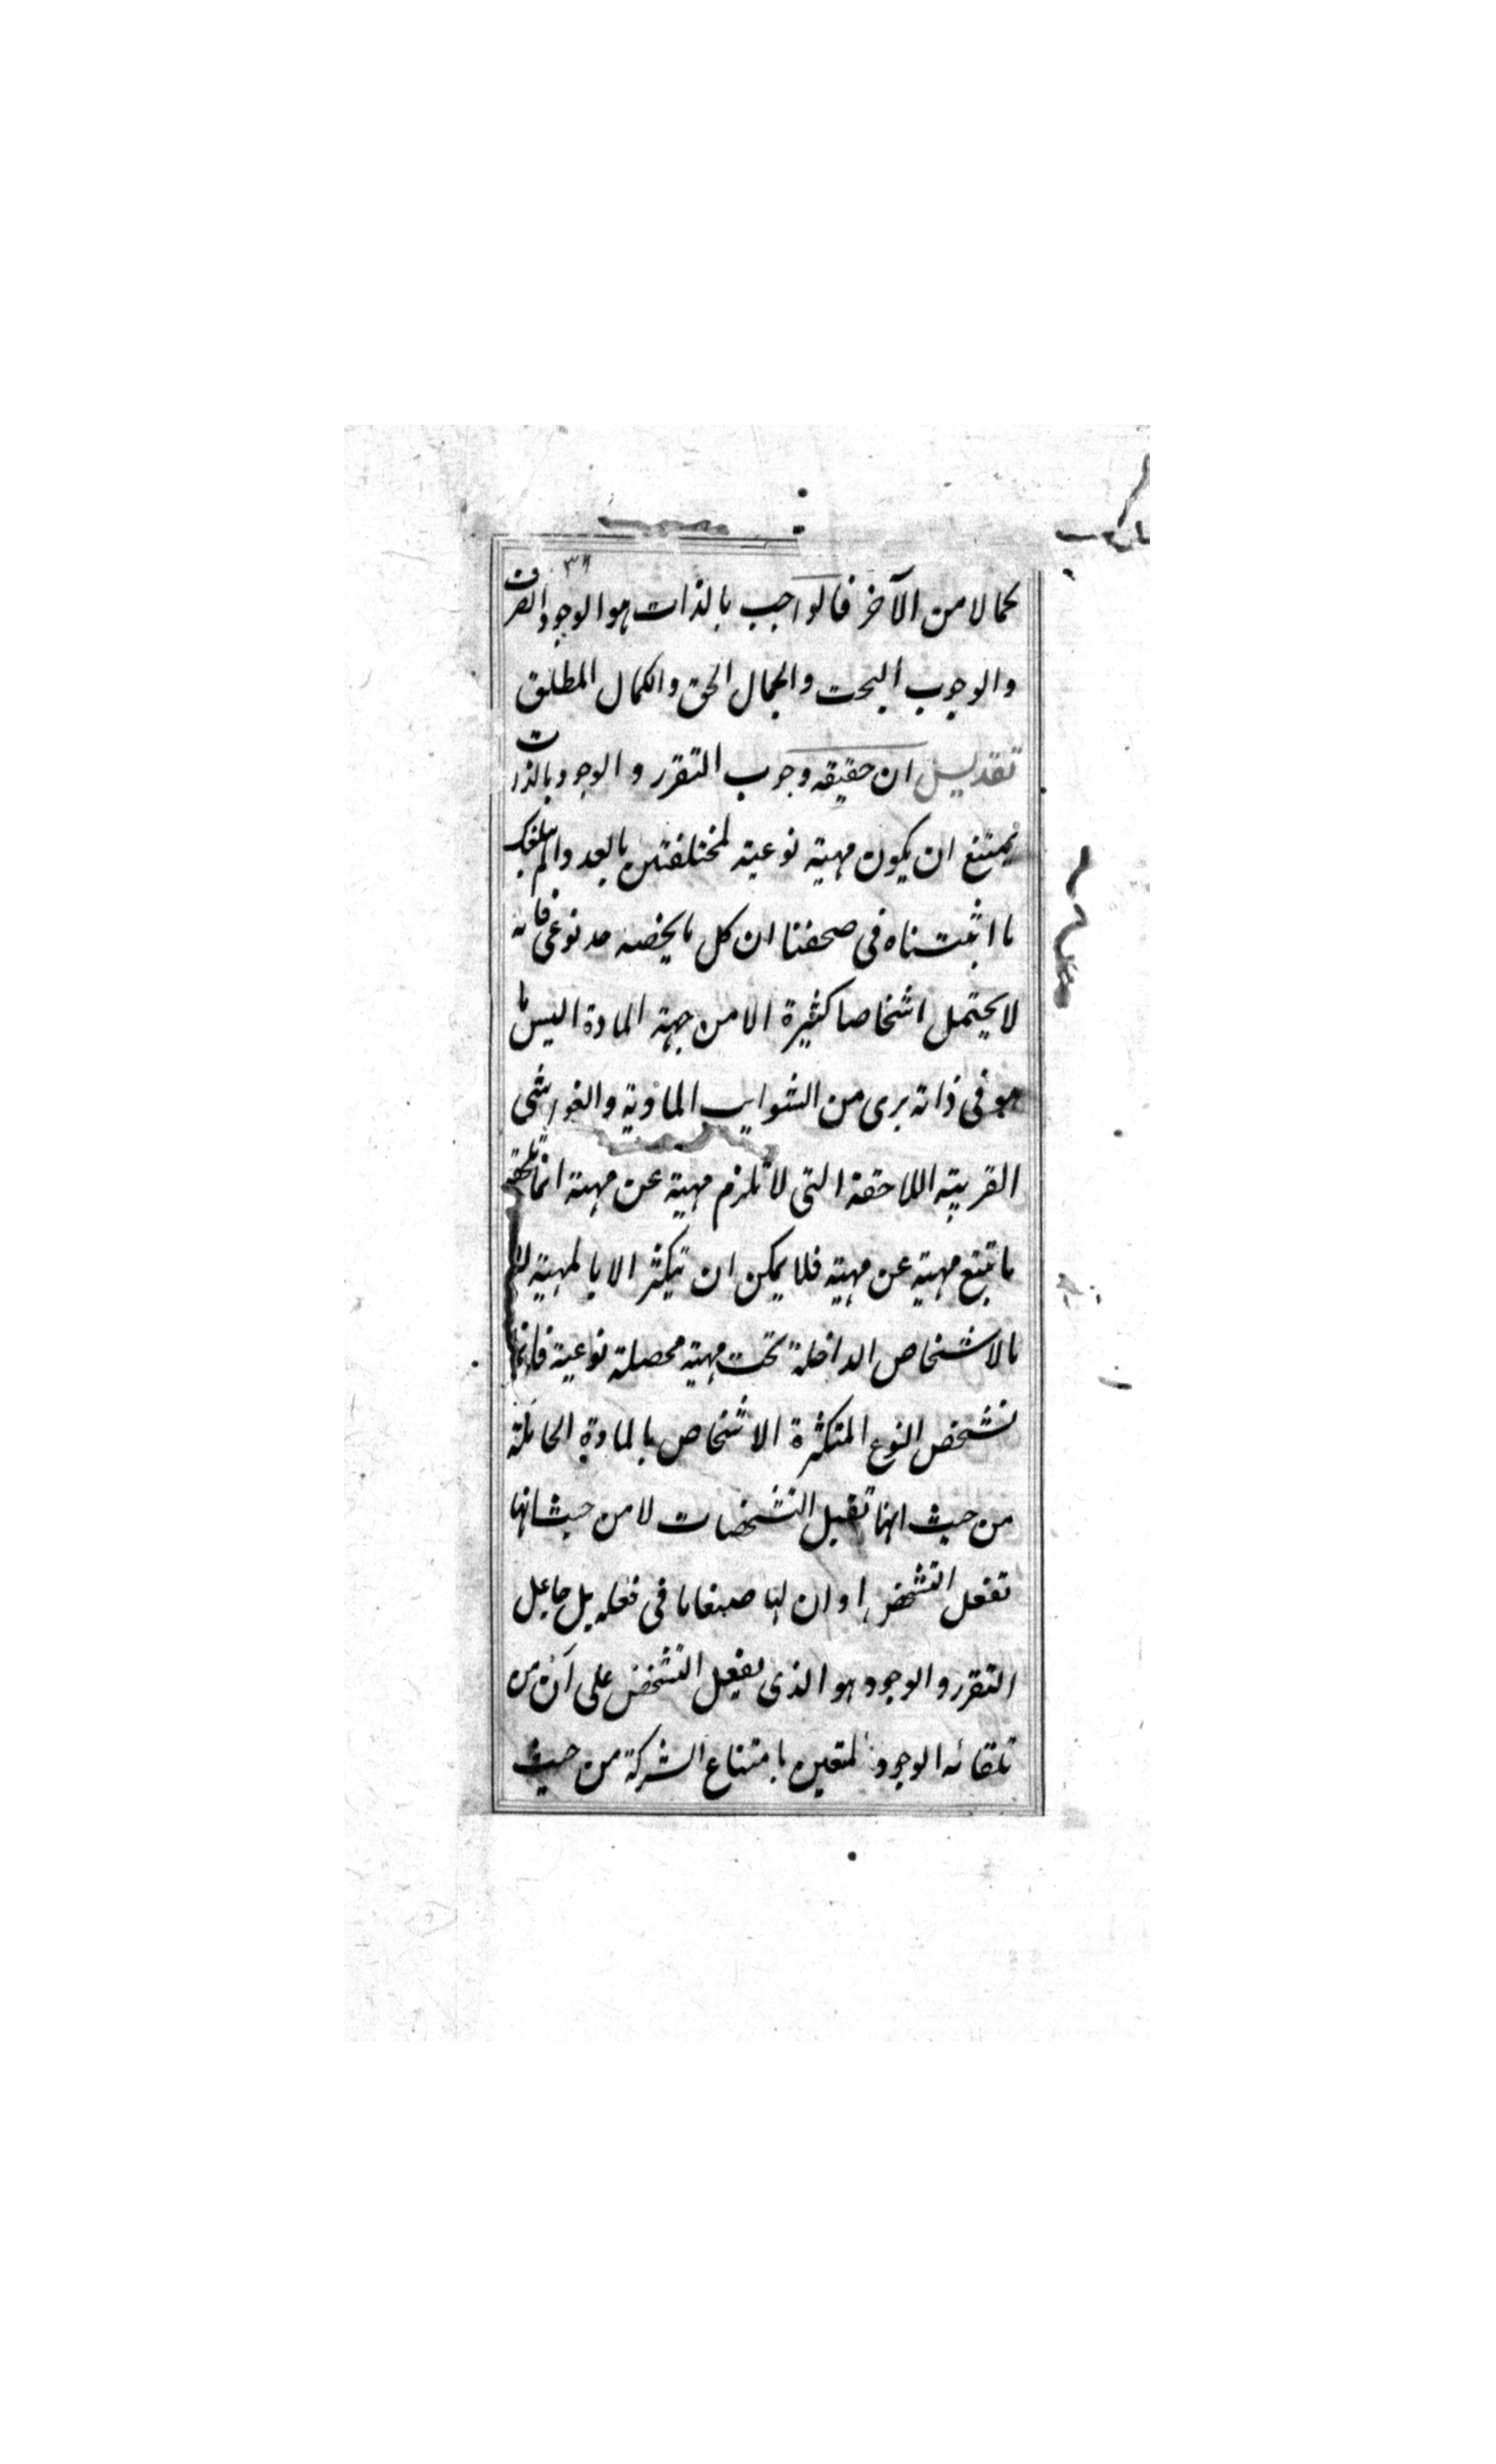 ٣٩
كمالا من الآخر فالواجب بالذات هو الوجود الصرف
والوجوب البحت والجمال الحق والكمال المطلق
تقديس ان حقيقه وجوب التقرر والوجود بالذات
يمتنع ان يكون مهية نوعية لمختلفتين بالعدد الم يبلغك
ما اثبتناه في صحفنا ان كل ما يخصه حد نوعي فانه
لا يحتمل اشخاصا كثيرة الا من جهة المادة اليس ما
هو في ذاته برى من الشوايب المادية والغواشى
الغريبة اللاحقة التى لا تلزم مهية عن مهية انما تلحقه
ما تتبع مهية عن مهية فلا يمكن ان يتكثر الا بالمهية
بالاشخاص الداخلة تحت مهية محصلة نوعية فانما
تشخص النوع المتكثرة الاشخاص بالمادة الحاملة
من حيث انها تقبل التشخصات لا من حيث انها
تفعل التشخص او ان لها صبغا ما في فعله بل جاعل
التقرر والوجود هو الذى يفعل التشخص على ان من
تلقائه الوجود المتعين بامتناع الشركة من حيث